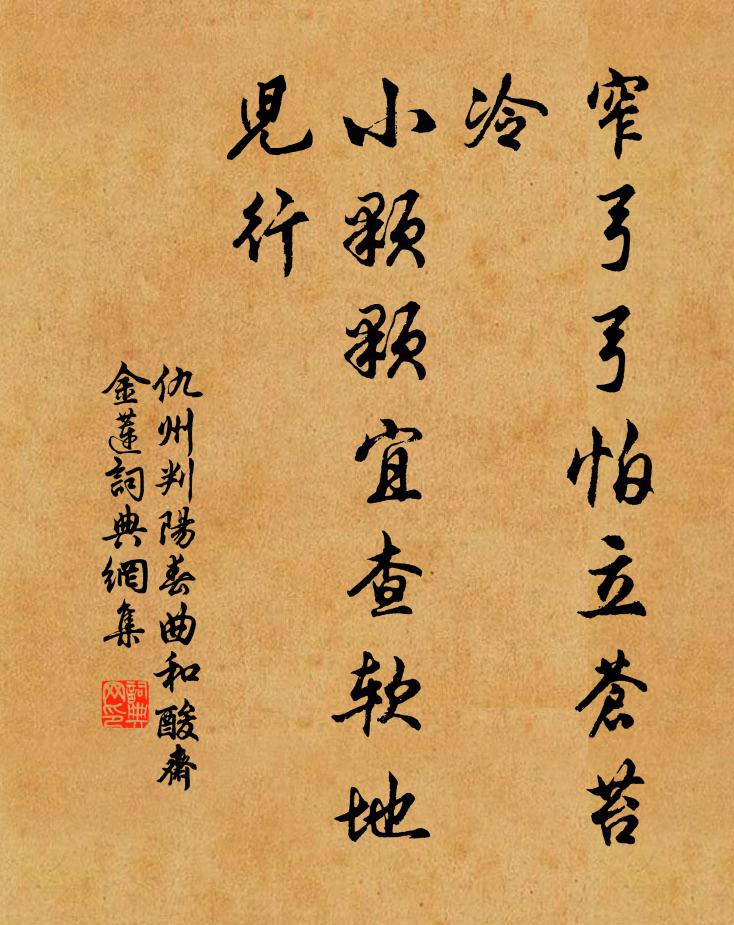 窄弓弓怕立蒼苔
冷
小顆顆宜查軟地
児行
仇州判陽春曲和酸齋
金蓮詞典網集
詞典
网印